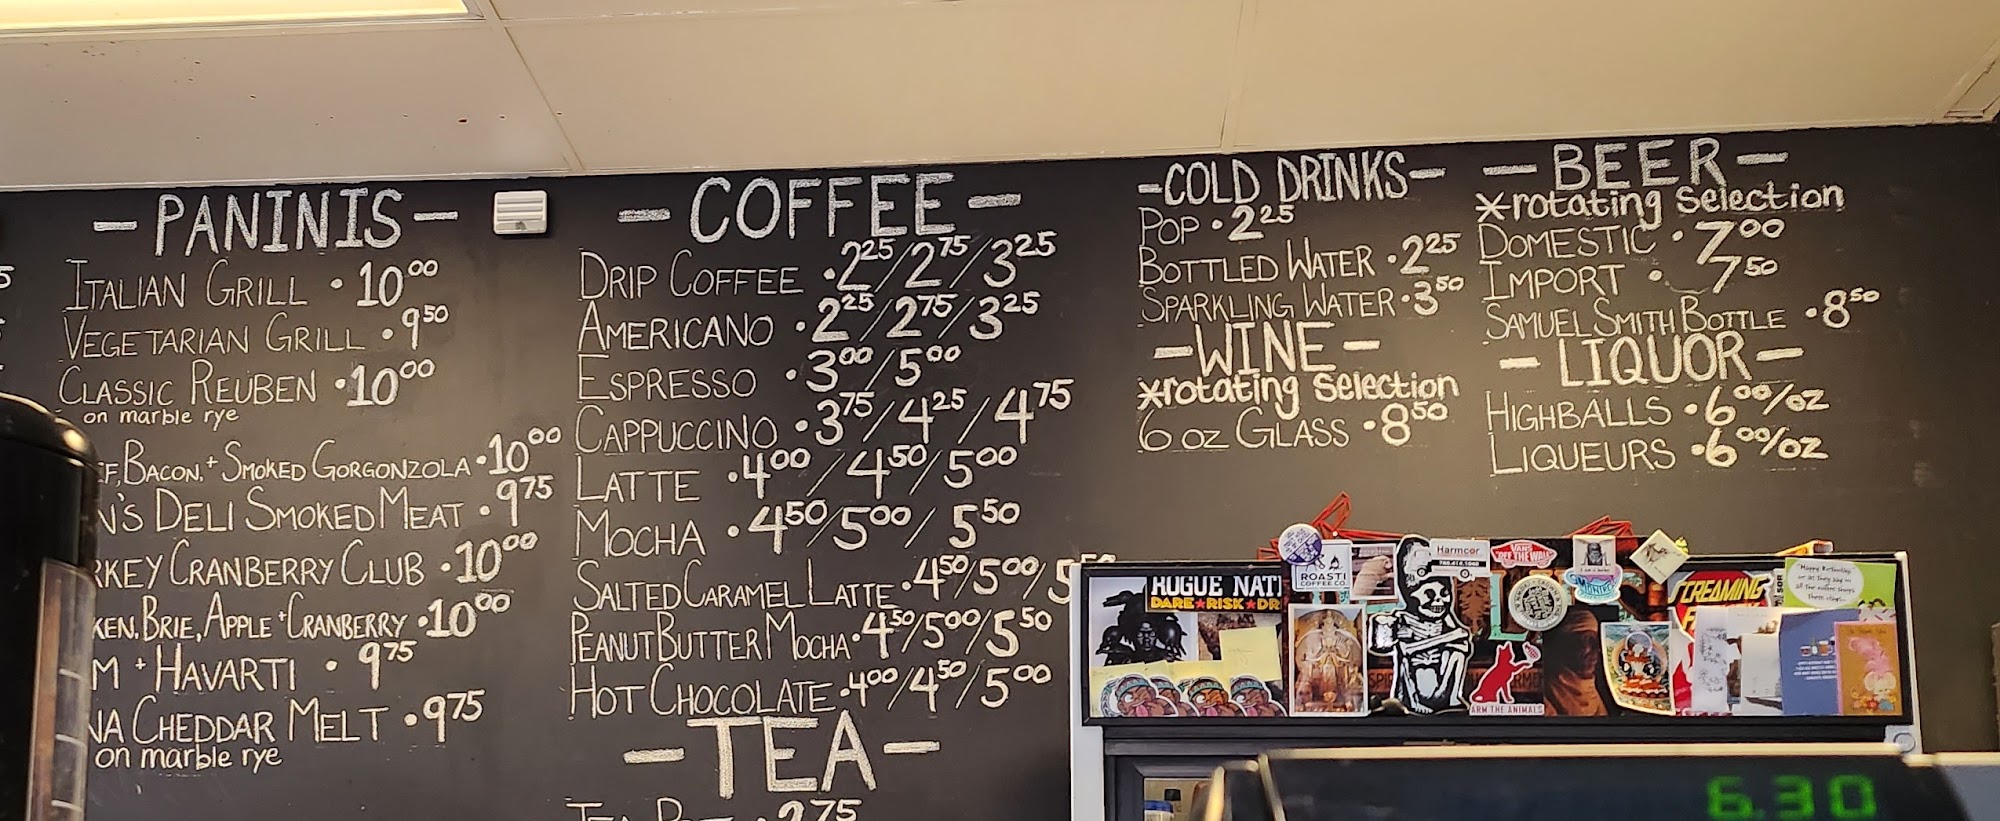 - PANINIS -
ITALIAN GRILL · 10⁰⁰
VEGETARIAN GRILL · 9⁵⁰
CLASSIC REUBEN · 10⁰⁰
on marble rye
BACON, + SMOKED GORGONZOLA · 10⁰⁰
DELI SMOKED MEAT · 9⁷⁵
CRANBERRY CLUB · 10⁰⁰
BRIE, APPLE + CRANBERRY · 10⁰⁰
+ HAVARTI · 9⁷⁵
CHEDDAR MELT · 9⁷⁵
on marble rye
- COFFEE -
DRIP COFFEE · 2²⁵/2⁷⁵/3²⁵
AMERICANO · 2²⁵/2⁷⁵/3²⁵
ESPRESSO · 3⁰⁰/5⁰⁰
CAPPUCCINO · 3⁷⁵/4²⁵/4⁷⁵
LATTE · 4⁰⁰/4⁵⁰/5⁰⁰
MOCHA · 4⁵⁰/5⁰⁰/5⁵⁰
SALTED CARAMEL LATTE · 4⁵⁰/5⁰⁰/5⁵⁰
PEANUT BUTTER MOCHA · 4⁵⁰/5⁰⁰/5⁵⁰
HOT CHOCOLATE · 4⁰⁰/4⁵⁰/5⁰⁰
- TEA -
2⁷⁵
- COLD DRINKS -
POP · 2²⁵
BOTTLED WATER · 2²⁵
SPARKLING WATER · 3⁵⁰
- WINE -
*rotating selection
6 OZ GLASS · 8⁵⁰
- BEER -
*rotating selection
DOMESTIC · 7⁰⁰
IMPORT · 7⁵⁰
SAMUEL SMITH BOTTLE · 8⁵⁰
- LIQUOR -
HIGHBALLS · 6⁰⁰/OZ
LIQUEURS · 6⁰⁰/OZ
ROGUE NATI
DARE ★ RISK ★ DR
ROASTI
COFFEE CO.
Harmcor
VANS
"OFF THE WALL"
SCREAMING
ARM THE ANIMALS
6.30